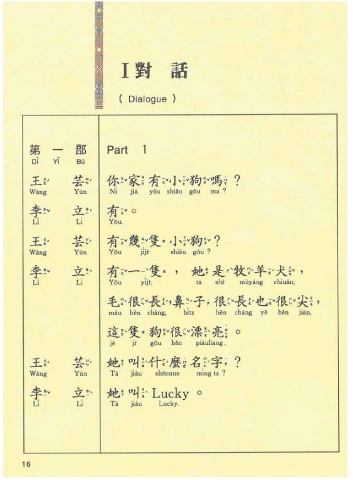 I 對 話
( Dialogue )
第 一 部 Part 1
Dì Yī Bù
王 芸 你家有小狗嗎？
Wáng Yún Nǐ jiā yǒu shiǎu gǒu ma ?
李 立 有。
Lǐ Lì Yǒu.
王 芸 有幾隻小狗？
Wáng Yún Yǒu jǐjř shiǎu gǒu ?
李 立 有一隻，她是牧羊犬，
Lǐ Lì Yǒu yìjr, tā shř mùyáng chiuǎn,
毛很長，鼻子很長也很尖，
máu hěn cháng, bítz hěn cháng yě hěn jiān,
這隻狗很漂亮。
jè jr gǒu hěn piàuliang.
王 芸 她叫什麼名字？
Wáng Yún Tā jiàu shénme míng tz ?
李 立 她叫 Lucky 。
Lǐ Lì Tā jiàu Lucky.
16